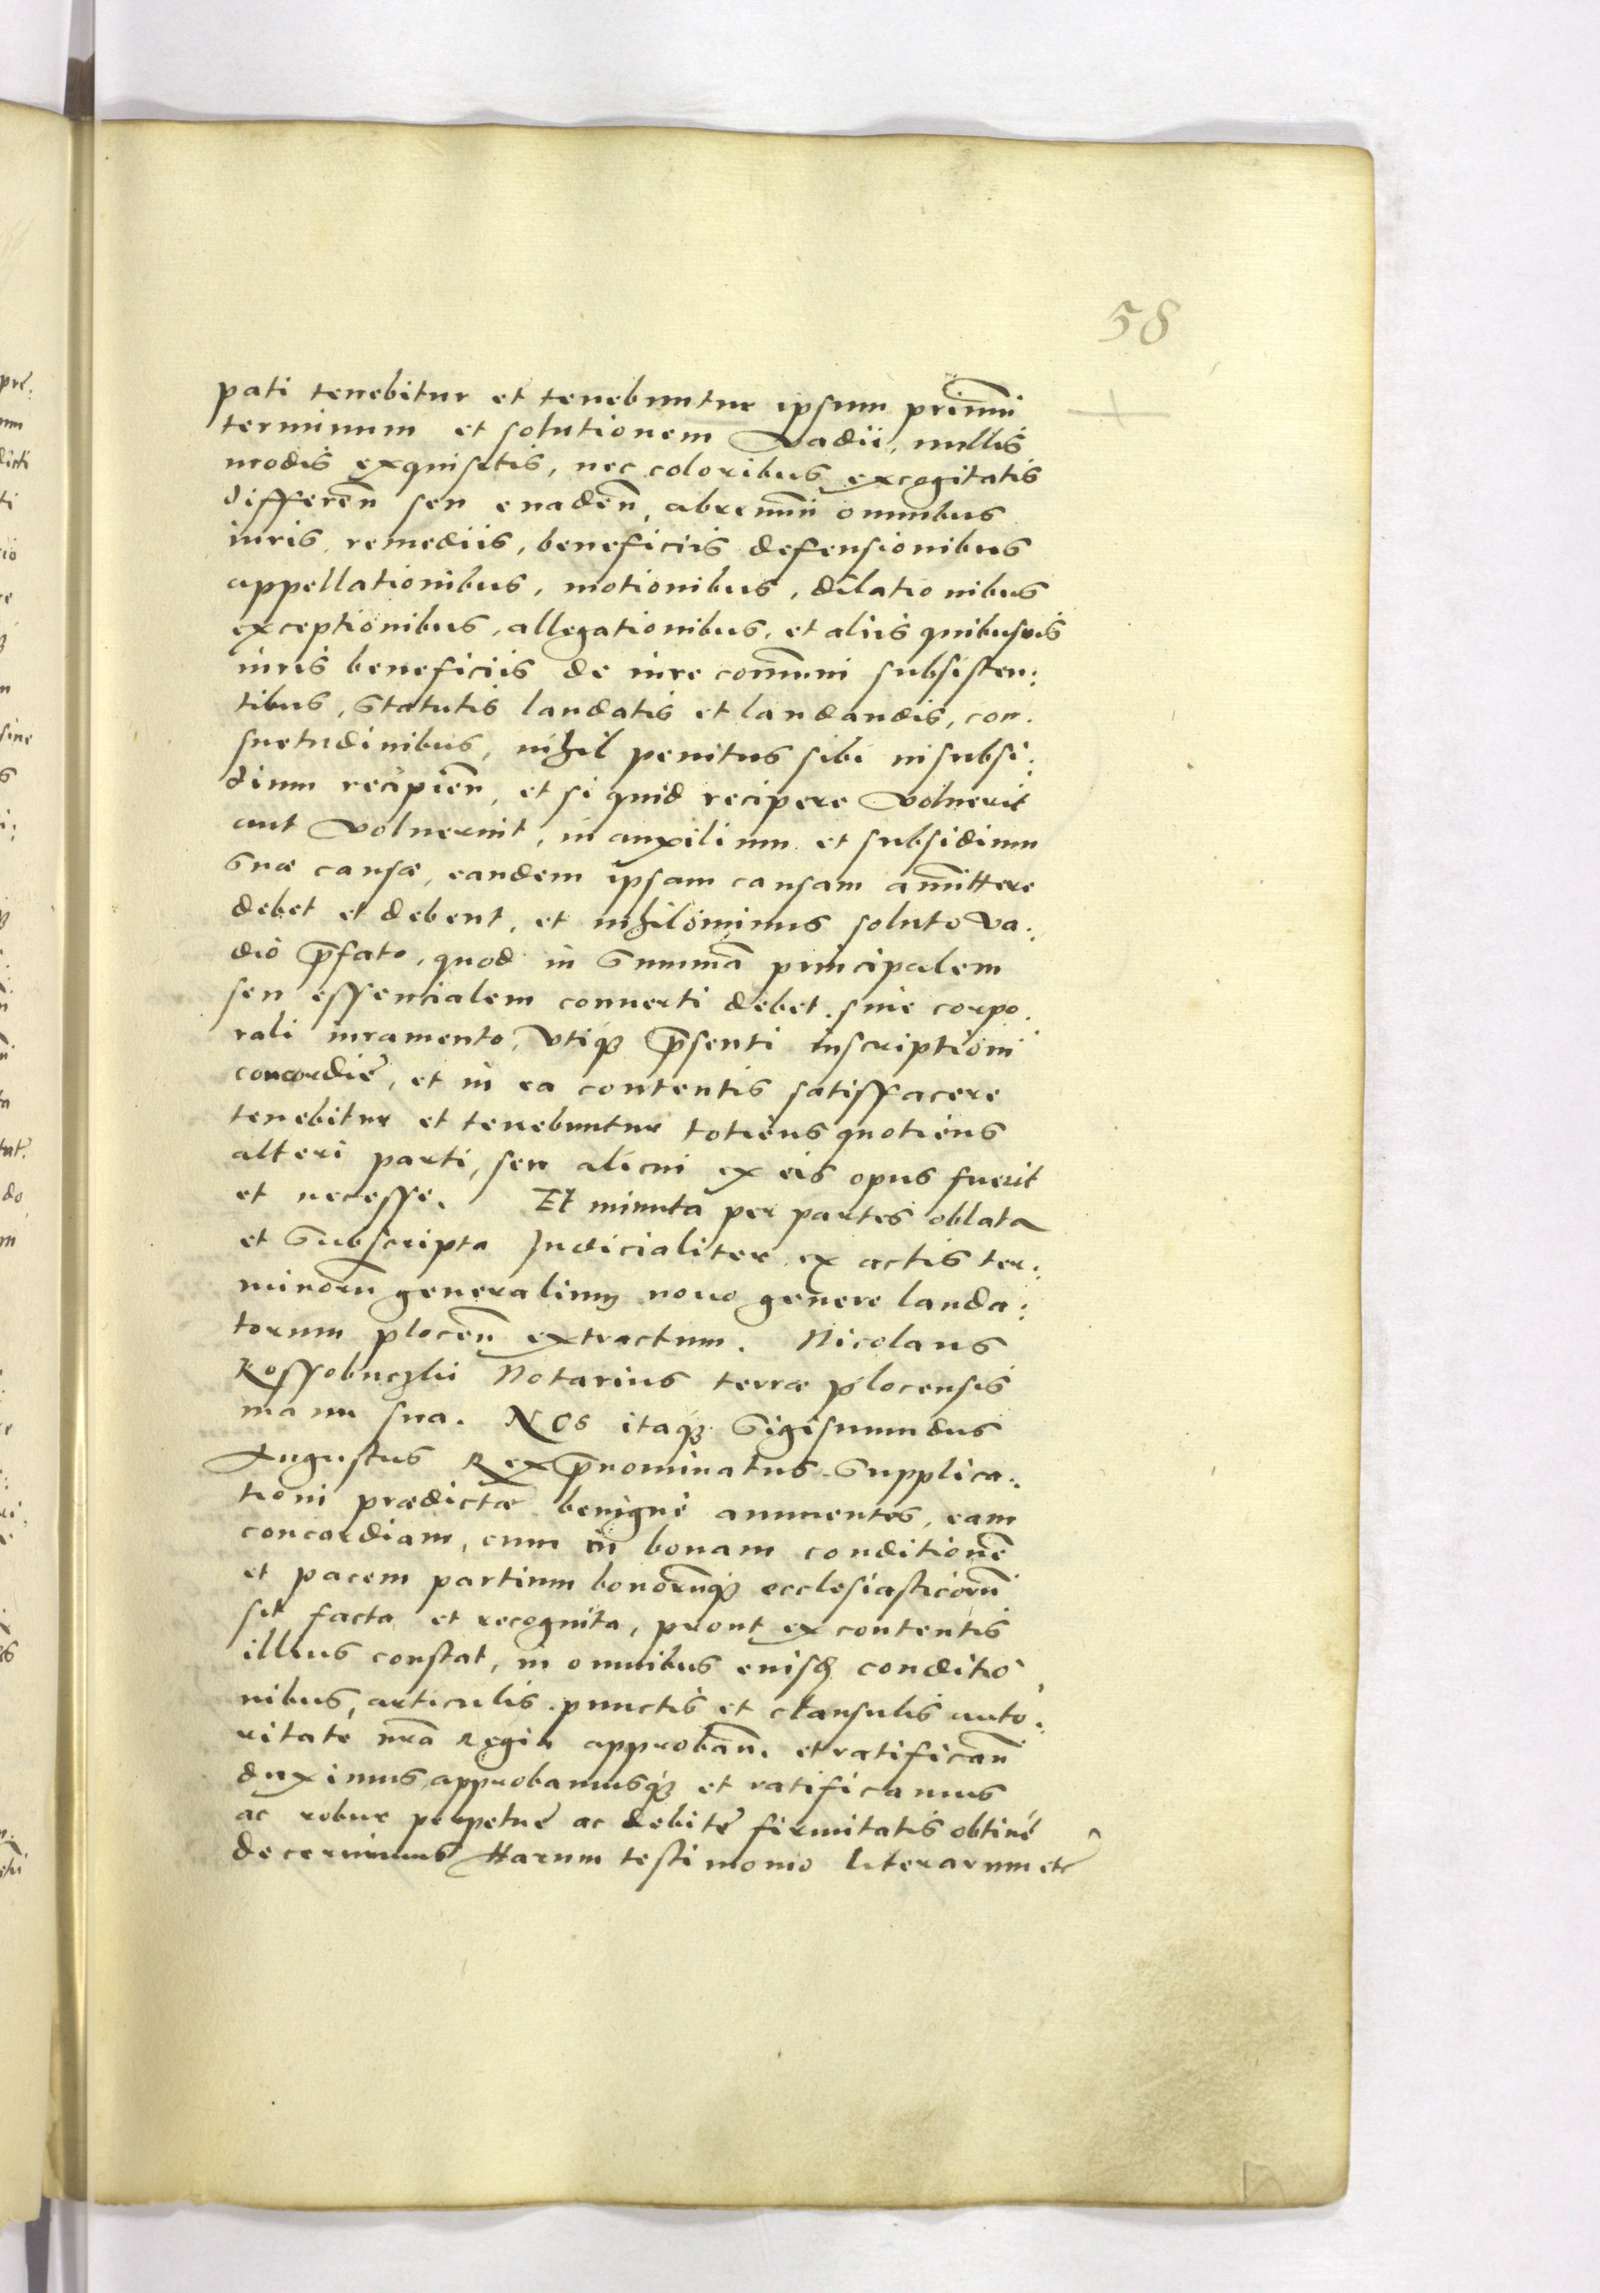 58
pati tenebitur et tenebuntur ipsum primũ
terminum et solutionem Vadii, nullis
modis exquisitis, nec coloribus excogitatis
differeñ seu euadeñ, abrenuñ omnibus
iuris remediis, beneficiis defensionibus
appellationibus, motionibus, dilationibus
exceptionibus, allegationibus, et aliis quibusuis
iuris beneficiis de iure com̃uni subsisten:
tibus, Statutis laudatis et laudandis, con:
suetudinibus, nihil penitus sibi in subsi:
dium recipieñ, et si quid recipere Voluerit
aut Voluerint, in auxilium et subsidium
Suæ causæ, eandem ipsam causam am̃ittere
debet et debent, et nihilominus soluto va:
dio p̃fato, quod in Sum̃ã principalem
seu essencialem conuerti debet. sine corpo:
rali iuramento, Vtiq3 p̃senti inscriptioni
concordie, et in ea contentis satisffacere
tenebitur et tenebuntur totiens quotiens
alteri parti, seu alicui ex eis opus fuerit
et necesse. Et minuta per partes oblata
et Subscripta Judicialiter ex actis ter:
minorũ generalium nouo genere lauda:
torum ploceñ extractum. Nicolaus
Kossobuczki Notarius terræ plocensis
manu sua. NOS itaq3 Sigismundus
Augustus Rex p̃nominatus Supplica:
tioni prædictæ benigne annuentes, eam
concordiam, cum in bonam conditionẽ
et pacem partium bonorũq3 ecclesiasticorũ
sit facta et recognita, prout ex contentis
illius constat, in omnibus eiusd conditio
nibus, articulis punctis et clausulis auto:
ritate nrã Regia approbañ. et ratificañ
duximus, approbamusq3 et ratificamus
ac robur perpetue ac debite firmitatis obtine
decernimus Harum testimonio literarum etc